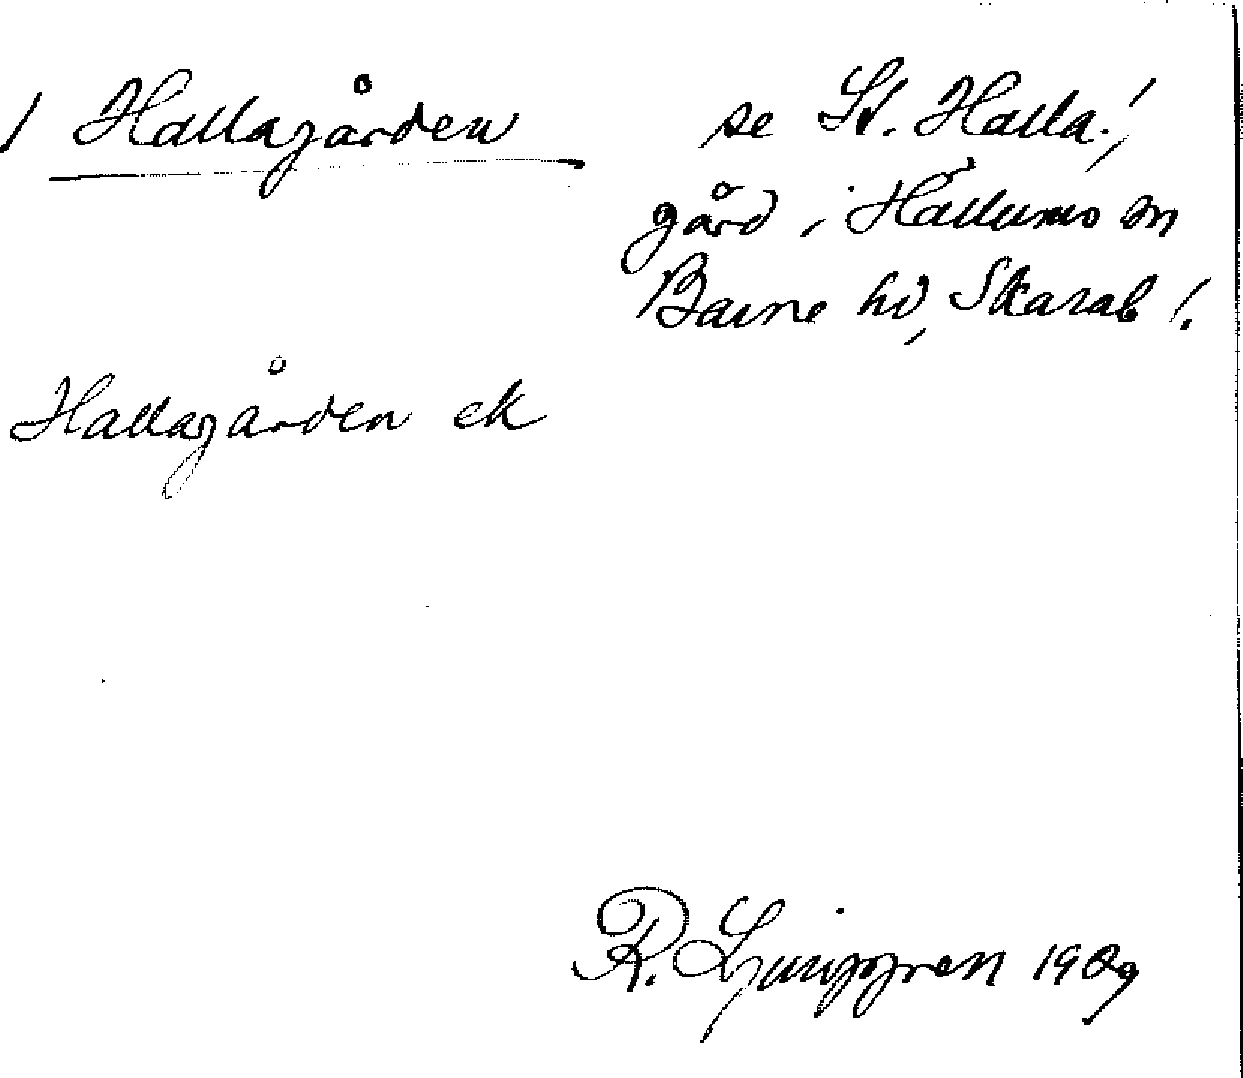 / Hallagården
se St. Halla!,
gård i Hällums sn
Barne hd, Skarab!.
Hallagården ek
R. Ljunggren 1909